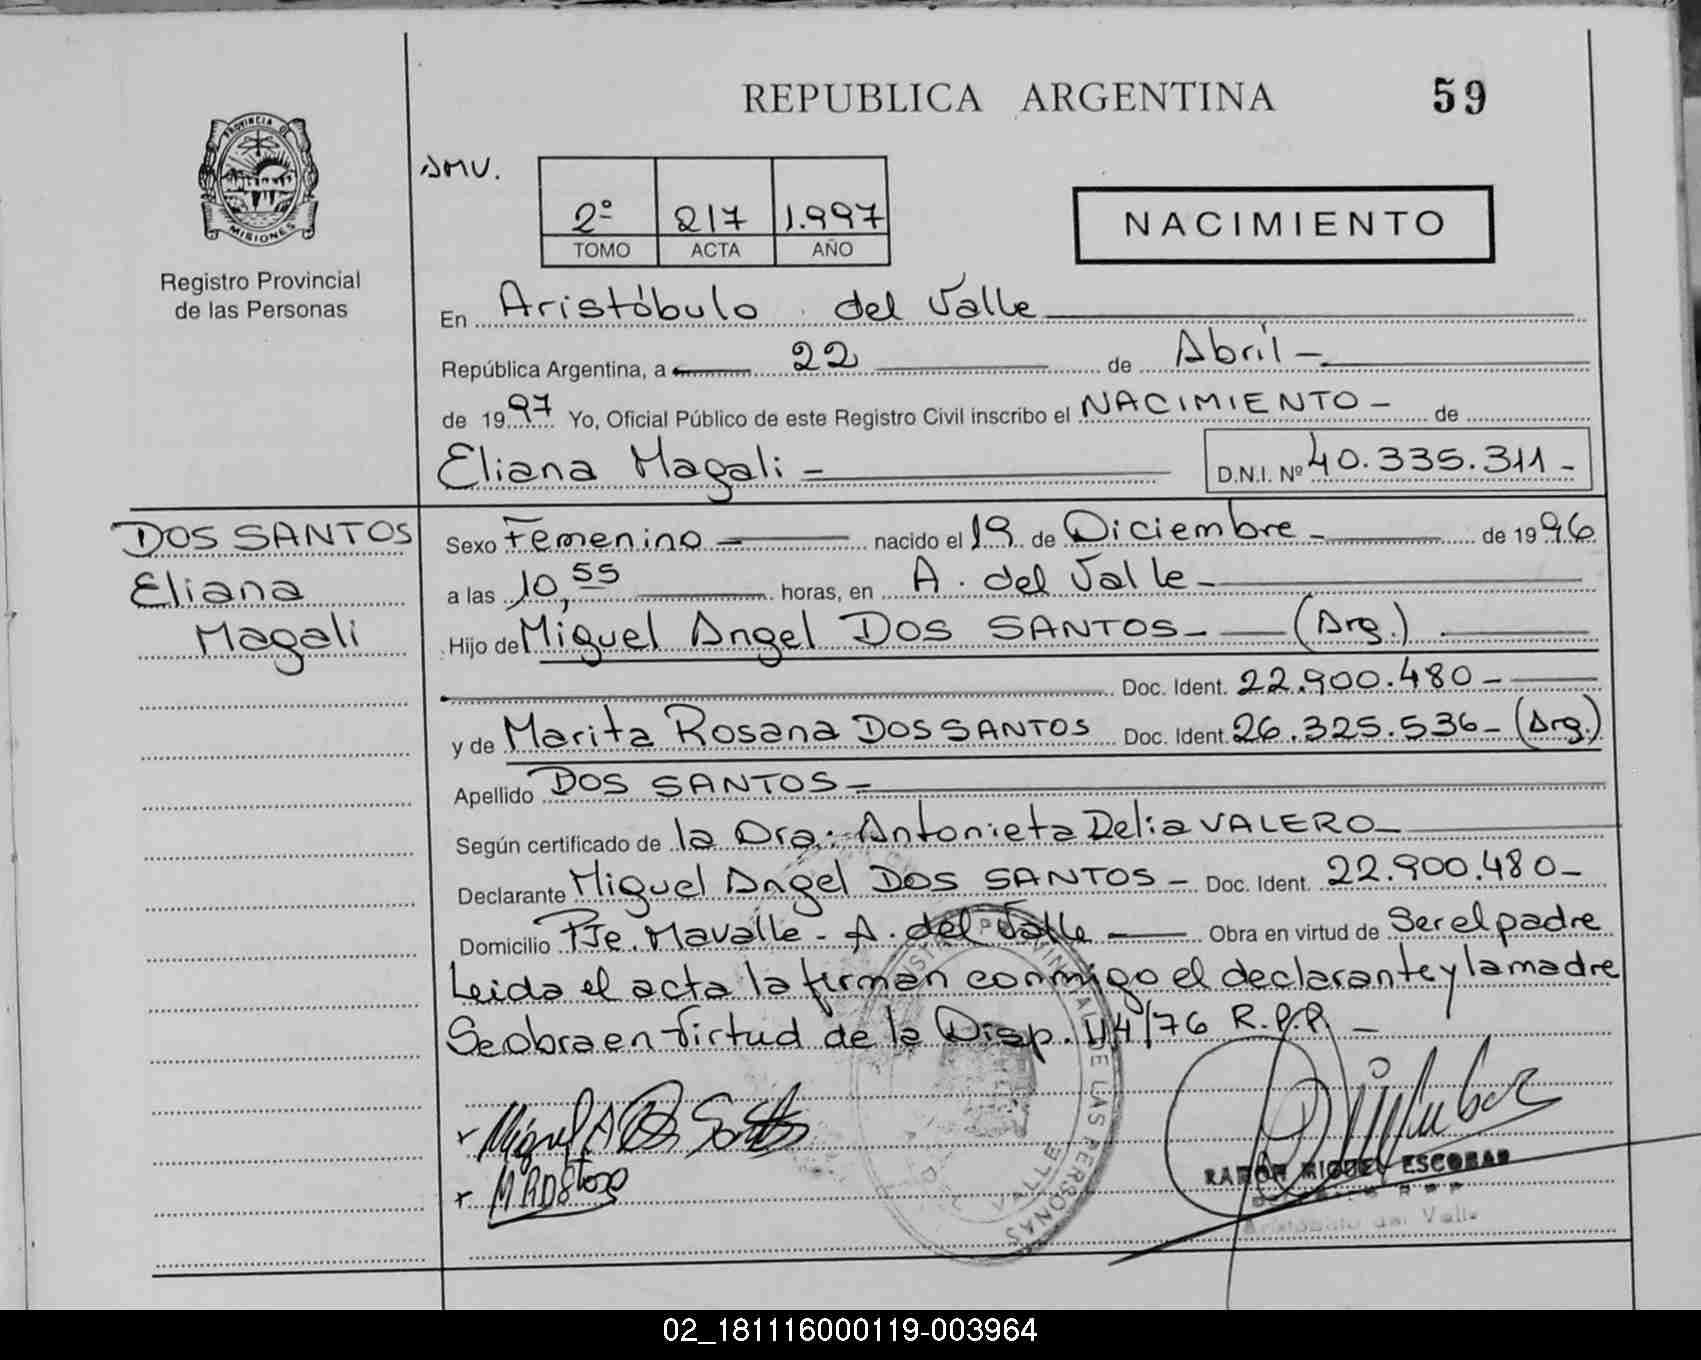 REPUBLICA ARGENTINA
59
PROVINCIA DE
MISIONES
Registro Provincial
de las Personas
AMV.
2º 217 1.997
TOMO ACTA AÑO
NACIMIENTO
En Aristóbulo del Valle
República Argentina, a 22 de Abril -
de 1997 Yo, Oficial Público de este Registro Civil inscribo el NACIMIENTO - de
Eliana Magali - D.N.I. Nº 40.335.311 -
DOS SANTOS
Eliana
Magali
Sexo Femenino - nacido el 19 de Diciembre - de 1996
a las 10,55 horas, en A. del Valle -
Hijo de Miguel Angel DOS SANTOS - (Arg.)
Doc. Ident. 22.900.480 -
y de Marita Rosana DOS SANTOS Doc. Ident. 26.325.536 - (Arg.)
Apellido DOS SANTOS -
Según certificado de la Dra: Antonieta Delia VALERO -
Declarante Miguel Angel DOS SANTOS - Doc. Ident. 22.900.480 -
Domicilio Pje. Mavalle - A. del Valle Obra en virtud de Ser el padre
Leida el acta la firman conmigo el declarante y la madre
Se obra en virtud de la Disp. 44/76 R.P.P. -
Miguel A Dos Santos
PROVINCIAL DE LAS PERSONAS
VALLE
RAMON MIGUEL ESCOBAR
Aristóbulo del Valle
02_181116000119-003964